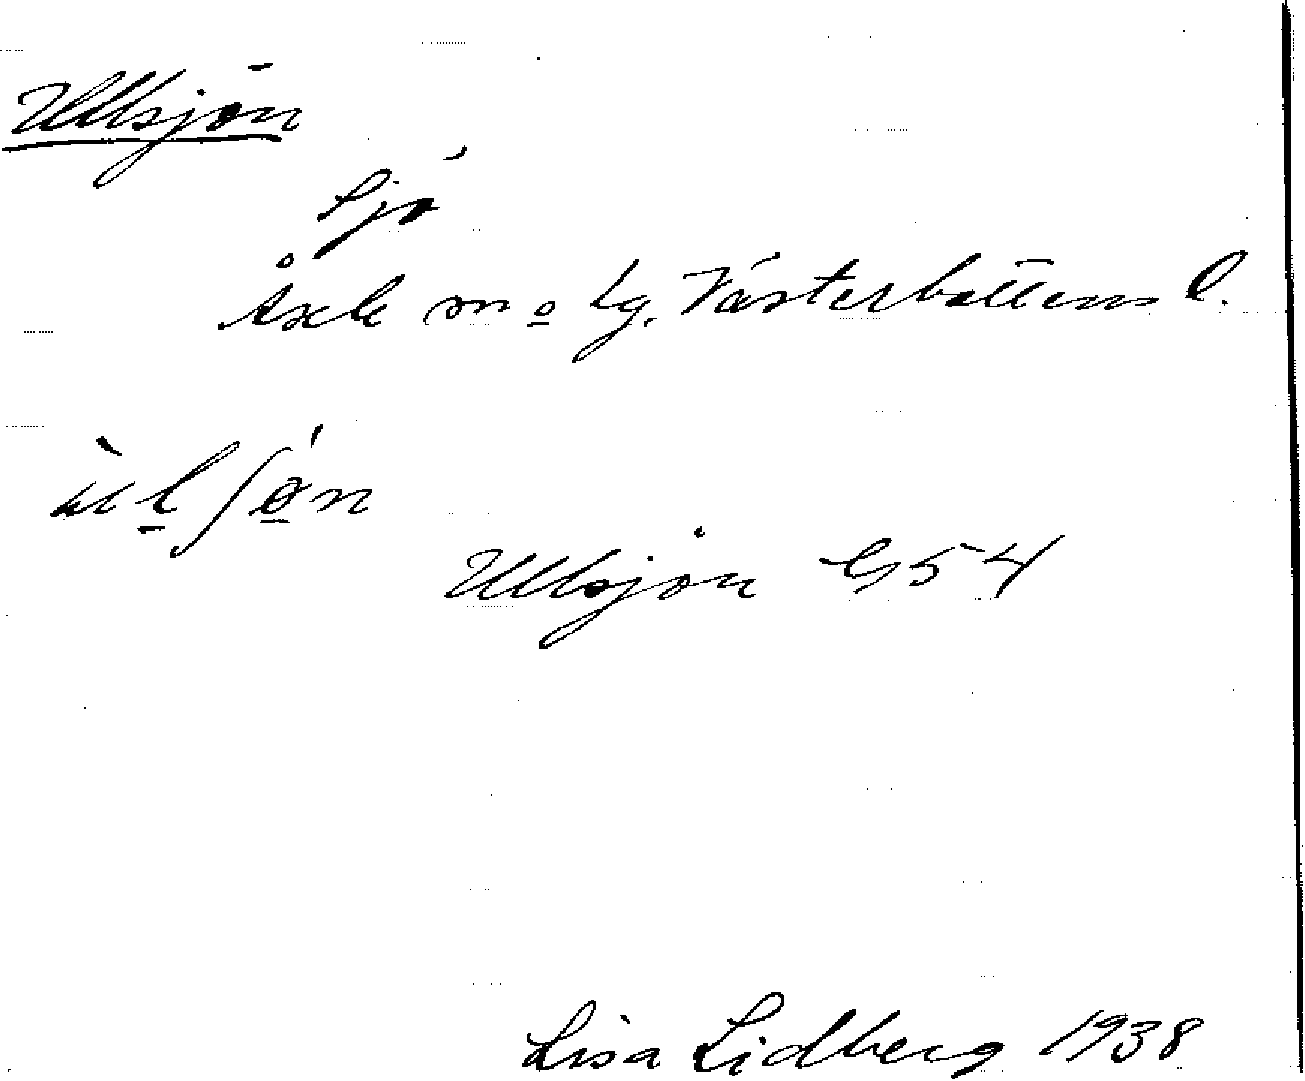 Ullsjön
Sjö
Åsele sn o tg. Västerbottens l.
Ullsjön G54
Lisa Lidberg 1938